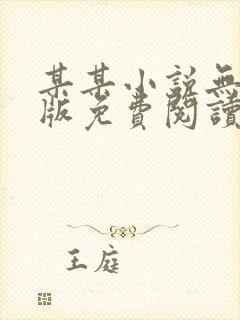 某某小説無
版免費閱讀
王庭